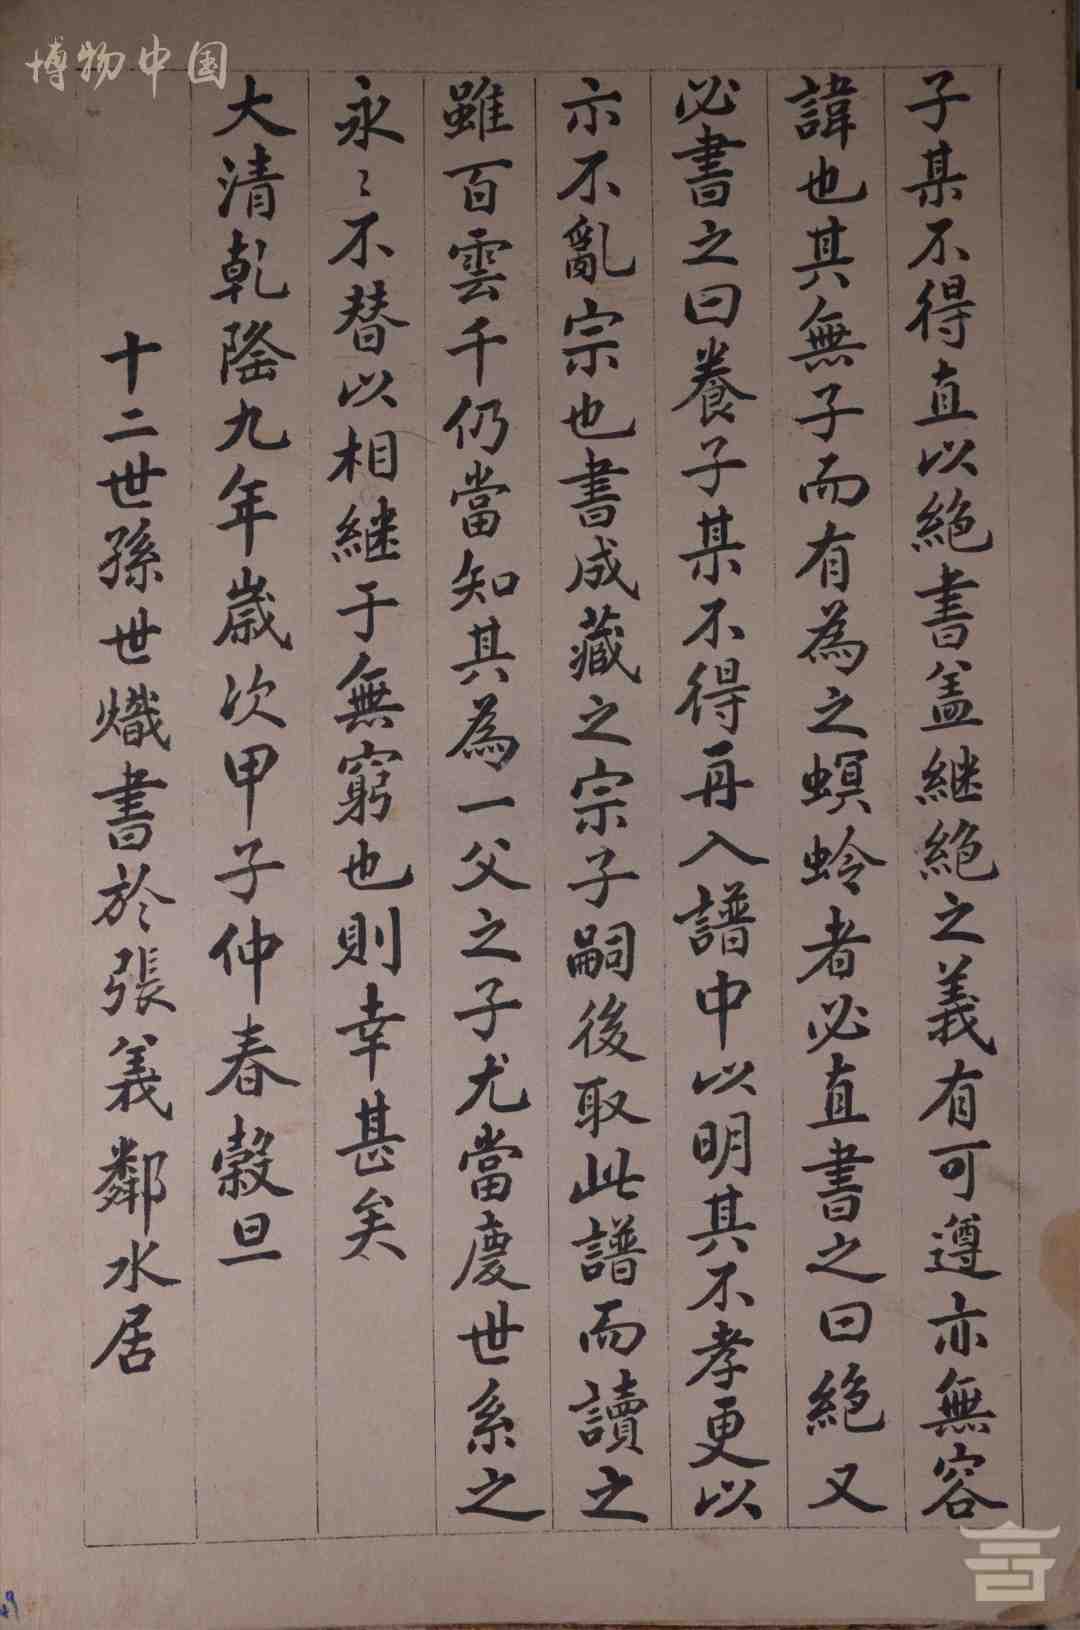 博物中国
子某不得直以絕書盖継絕之義有可遵亦無容
諱也其無子而有為之螟蛉者必直書之曰絕又
必書之曰養子某不得再入譜中以明其不孝更以
示不亂宗也書成藏之宗子嗣後取此譜而讀之
雖百雲千仍當知其為一父之子尤當慶世系之
永〻不替以相継于無窮也則幸甚矣
大清乾隆九年歲次甲子仲春穀旦
十二世孫世熾書於張義鄰水居
49